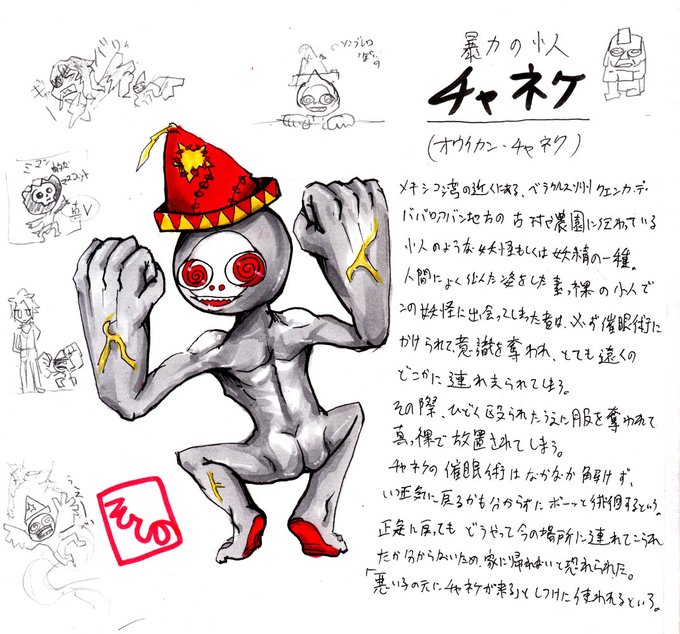 暴力の小人
チャネケ
(オウイカン・チャネク)
メキシコ湾の近くにある、ベラクルス州クェンカ・デ・
パパロアパン地方の古村や農園に伝わっている
小人のような妖怪もしくは妖精の一種。
人間によく似た姿をした素っ裸の小人で
この妖怪に出会ってしまった者は、必ず催眠術に
かけられて意識を奪われ、とても遠くの
どこかに連れ去られてしまう。
その際、ひどく殴られたうえに服を奪われて
真っ裸で放置されてしまう。
チャネケの催眠術はなかなか解けず、
いつ正気に戻るかも分からずにボーッと徘徊するという。
正気に戻っても どうやって今の場所に連れてこられ
たか分からないため、家に帰れないと恐れられた。
「悪い子の元にチャネケが来る」としつけに使われるという。